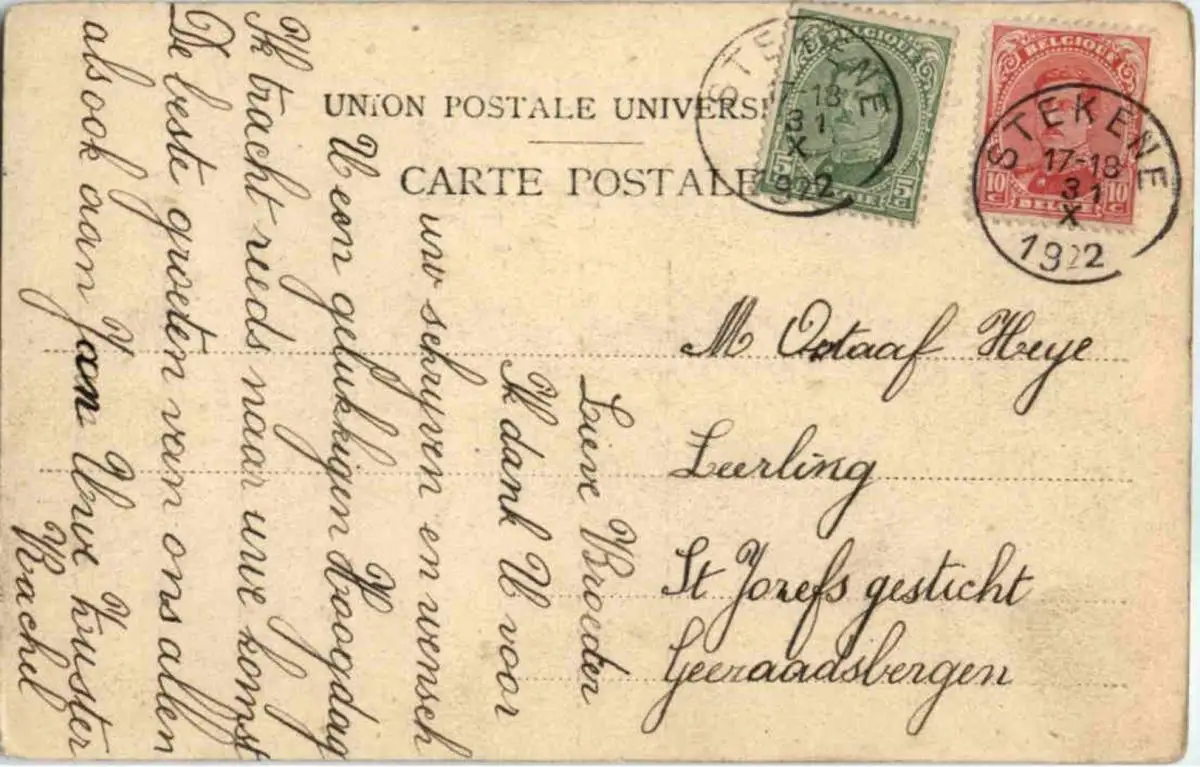 UNION POSTALE UNIVERS
CARTE POSTALE
BELGIQUE
5 C 5 C
BELGIQUE
10 C 10 C
STEKENE
17-18
31
X
1922
STEKENE
17-18
31
X
1922
M Ostaaf Heye
Leerling
St Jozefs gesticht
Geeraadsbergen
Lieve Broeder
Ik dank U voor
uw schryven en wensch
U een gelukkigen Hoogdag
Ik tracht reeds naar uwe komst
De beste groeten van ons allen
alsook aan Jan Uwe Zuster
Rachel